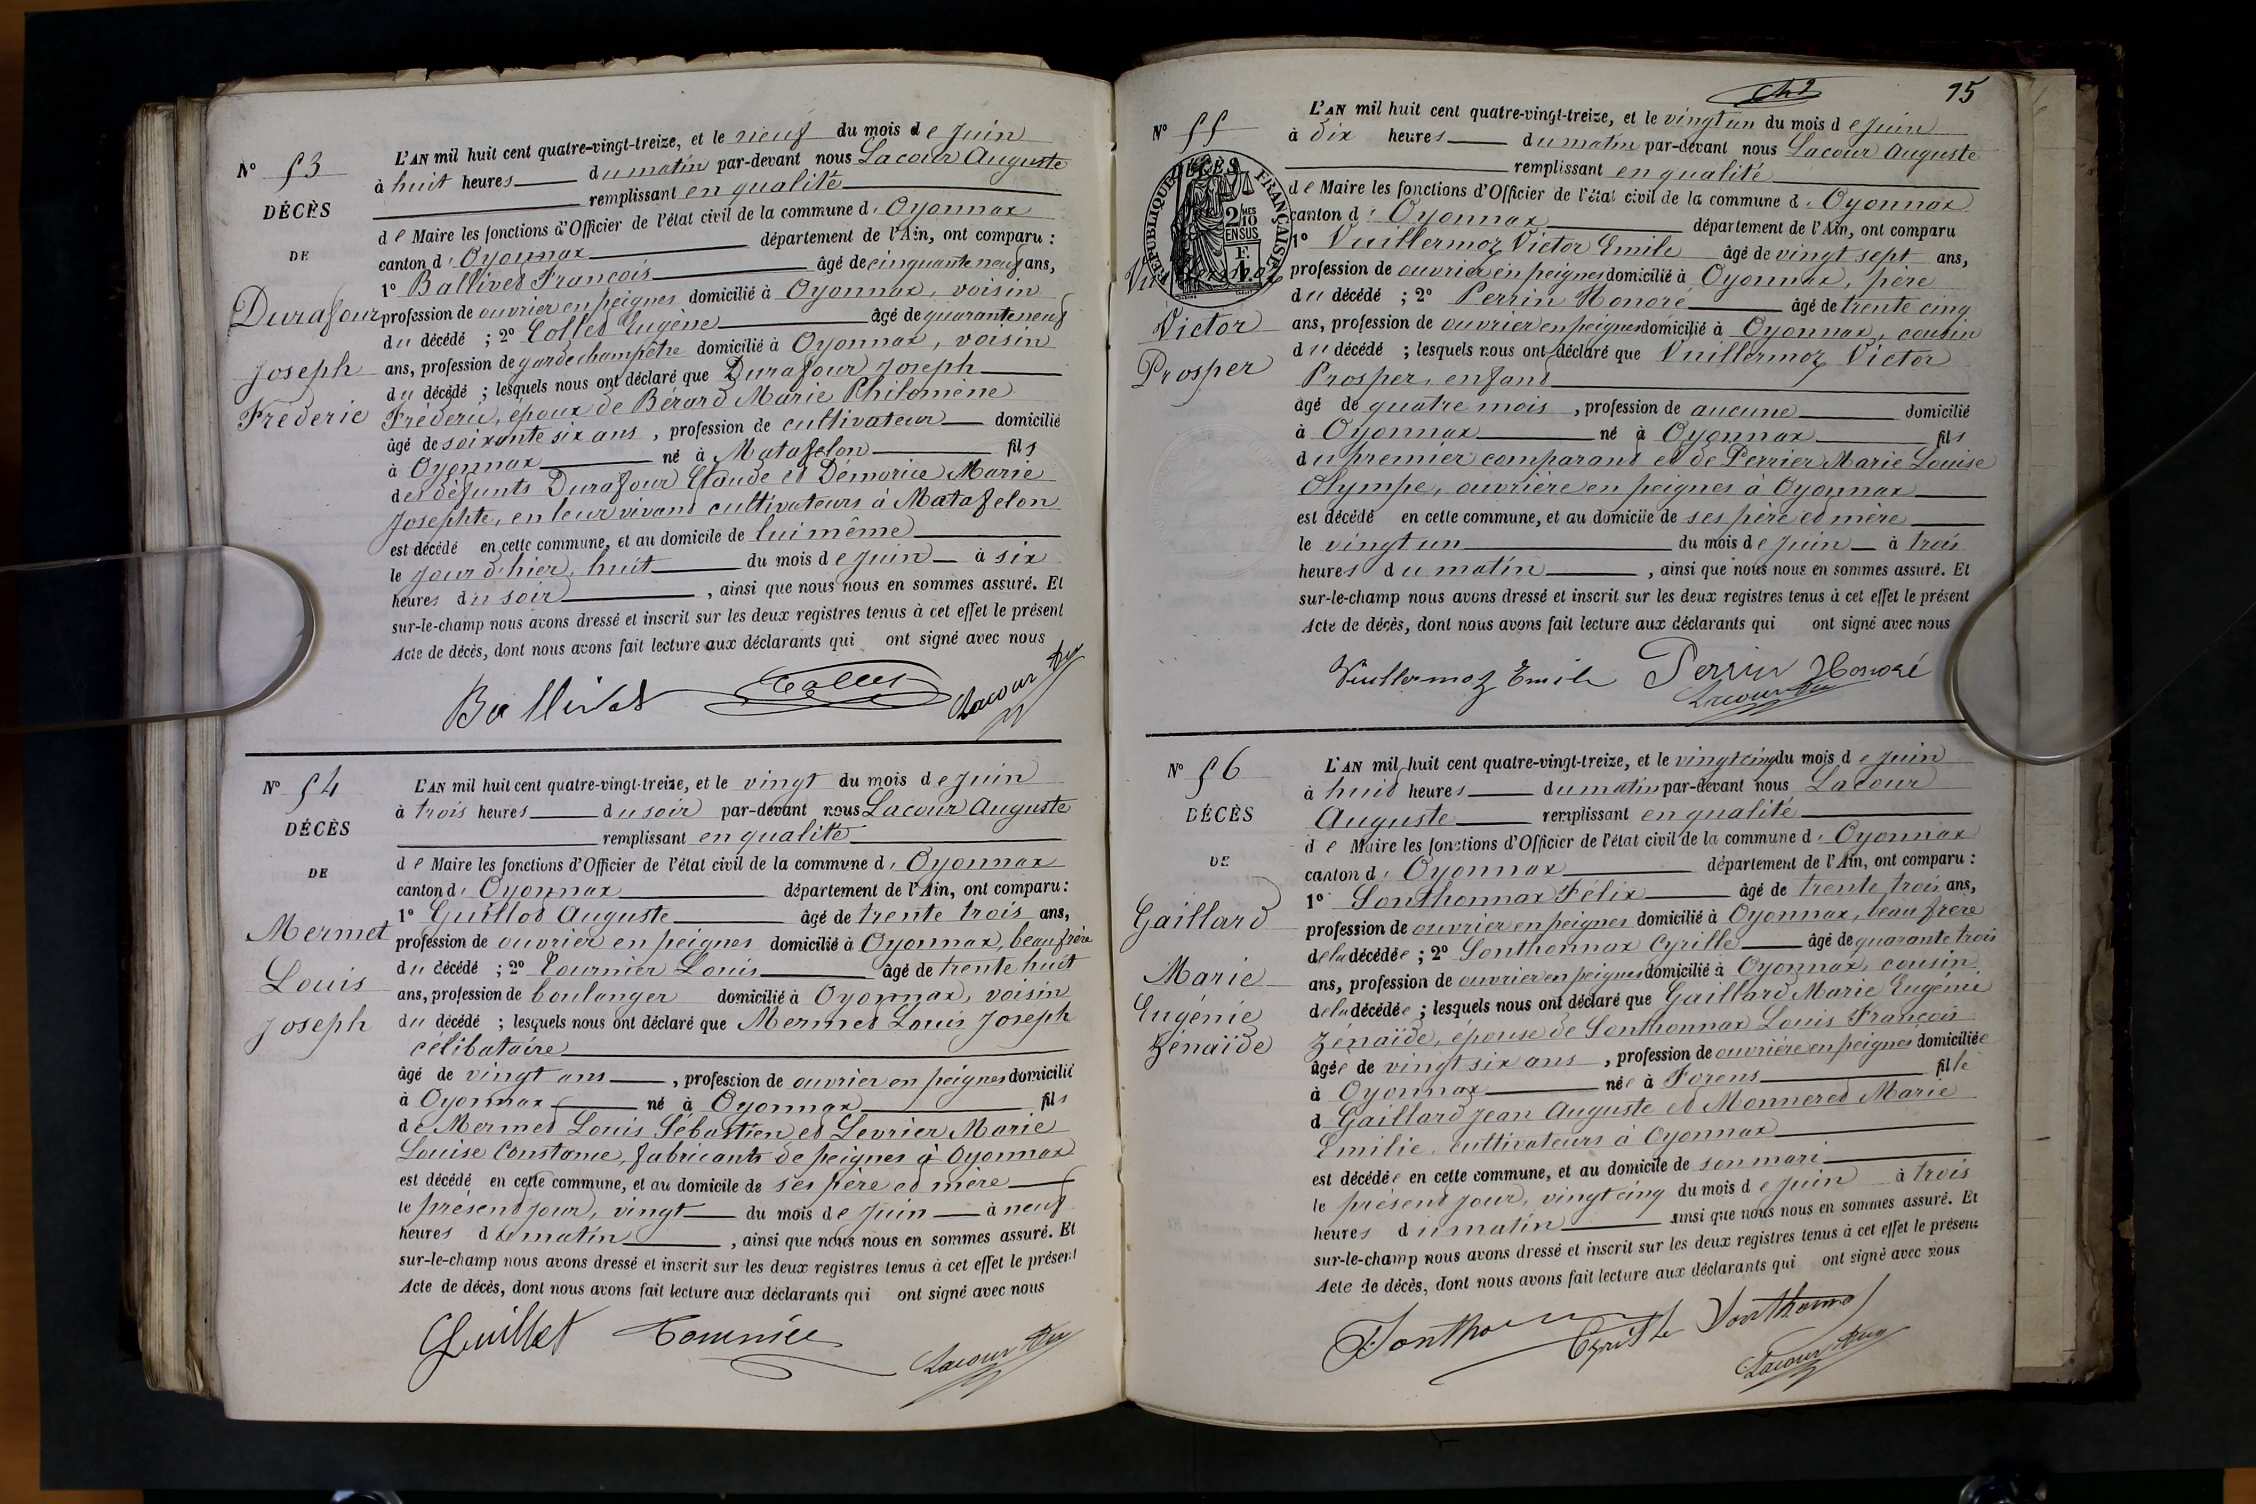 N° 53
DÉCÈS
DE
Durafour
Joseph
Fréderic
L'AN mil huit cent quatre-vingt-treize, et le neuf du mois de Juin
à huit heures du matin par-devant nous Lacour Auguste
remplissant en qualité
de Maire les fonctions d'Officier de l'état civil de la commune d'Oyonnax
canton d'Oyonnax département de l'Ain, ont comparu :
1° Ballivet François âgé de cinquante neuf ans,
profession de ouvrier en peignes domicilié à Oyonnax, voisin
du décédé ; 2° Collet Eugène âgé de quarante neuf
ans, profession de garde champêtre domicilié à Oyonnax, voisin
du décédé ; lesquels nous ont déclaré que Durafour Joseph
Fréderic, époux de Bérard Marie Philomène
âgé de soixante six ans, profession de cultivateur domicilié
à Oyonnax né à Matafelon fils
des défunts Durafour Claude et Démorice Marie
Josephte, en leur vivant cultivateurs à Matafelon
est décédé en cette commune, et au domicile de lui même
le jour d'hier, huit du mois de Juin à six
heures du soir, ainsi que nous nous en sommes assuré. Et
sur-le-champ nous avons dressé et inscrit sur les deux registres tenus à cet effet le présent
Acte de décès, dont nous avons fait lecture aux déclarants qui ont signé avec nous
Ballivet Collet Lacour Aug
N° 54
DÉCÈS
DE
Mermet
Louis
Joseph
L'AN mil huit cent quatre-vingt-treize, et le vingt du mois de Juin
à trois heures du soir par-devant nous Lacour Auguste
remplissant en qualité
de Maire les fonctions d'Officier de l'état civil de la commune d'Oyonnax
canton d'Oyonnax département de l'Ain, ont comparu :
1° Guillot Auguste âgé de trente trois ans,
profession de ouvrier en peignes domicilié à Oyonnax, beau frère
du décédé ; 2° Tournier Louis âgé de trente huit
ans, profession de boulanger domicilié à Oyonnax, voisin
du décédé ; lesquels nous ont déclaré que Mermet Louis Joseph
célibataire
âgé de vingt ans, profession de ouvrier en peignes domicilié
à Oyonnax né à Oyonnax fils
de Mermet Louis Sébastien et Levrier Marie
Louise Constance, fabricants de peignes à Oyonnax
est décédé en cette commune, et au domicile de ses père et mère
le présent jour, vingt du mois de Juin à neuf
heures du matin, ainsi que nous nous en sommes assuré. Et
sur-le-champ nous avons dressé et inscrit sur les deux registres tenus à cet effet le présent
Acte de décès, dont nous avons fait lecture aux déclarants qui ont signé avec nous
Guillot Tournier Lacour Aug
15
N° 55
DÉCÈS
RÉPUBLIQUE FRANÇAISE
2 MES 10 EN SUS
Victor
Prosper
L'AN mil huit cent quatre-vingt-treize, et le vingt un du mois de Juin
à dix heures du matin par-devant nous Lacour Auguste
remplissant en qualité
de Maire les fonctions d'Officier de l'état civil de la commune d'Oyonnax
canton d'Oyonnax département de l'Ain, ont comparu
1° Vuillermoz Victor Emile âgé de vingt sept ans,
profession de ouvrier en peignes domicilié à Oyonnax, père
du décédé ; 2° Perrin Honoré âgé de trente cinq
ans, profession de ouvrier en peignes domicilié à Oyonnax, cousin
du décédé ; lesquels nous ont déclaré que Vuillermoz Victor
Prosper, enfant
âgé de quatre mois, profession de aucune domicilié
à Oyonnax né à Oyonnax fils
du premier comparant et de Perrier Marie Louise
Olympe, ouvrière en peignes à Oyonnax
est décédé en cette commune, et au domicile de ses père et mère
le vingt un du mois de Juin à trois
heures du matin, ainsi que nous nous en sommes assuré. Et
sur-le-champ nous avons dressé et inscrit sur les deux registres tenus à cet effet le présent
Acte de décès, dont nous avons fait lecture aux déclarants qui ont signé avec nous
Vuillermoz Emile Perrin Honoré
Lacour Aug
N° 56
DÉCÈS
DE
Gaillard
Marie
Eugénie
Zénaïde
L'AN mil huit cent quatre-vingt-treize, et le vingt cinq du mois de Juin
à huit heures du matin par-devant nous Lacour
Auguste remplissant en qualité
de Maire les fonctions d'Officier de l'état civil de la commune d'Oyonnax
canton d'Oyonnax département de l'Ain, ont comparu :
1° Sonthonnax Félix âgé de trente trois ans,
profession de ouvrier en peignes domicilié à Oyonnax, beau frère
de la décédée ; 2° Sonthonnax Cyrille âgé de quarante trois
ans, profession de ouvrier en peignes domicilié à Oyonnax, cousin
de la décédée ; lesquels nous ont déclaré que Gaillard Marie Eugénie
Zénaïde, épouse de Sonthonnax Louis François
âgée de vingt six ans, profession de ouvrière en peignes domiciliée
à Oyonnax née à Forens fille
d Gaillard Jean Auguste et Monneret Marie
Emilie, cultivateurs à Oyonnax
est décédée en cette commune, et au domicile de son mari
le présent jour, vingt cinq du mois de Juin à trois
heures du matin ainsi que nous nous en sommes assuré. Et
sur-le-champ nous avons dressé et inscrit sur les deux registres tenus à cet effet le présent
Acte de décès, dont nous avons fait lecture aux déclarants qui ont signé avec nous
Cyrille Sonthonnax
Lacour Aug